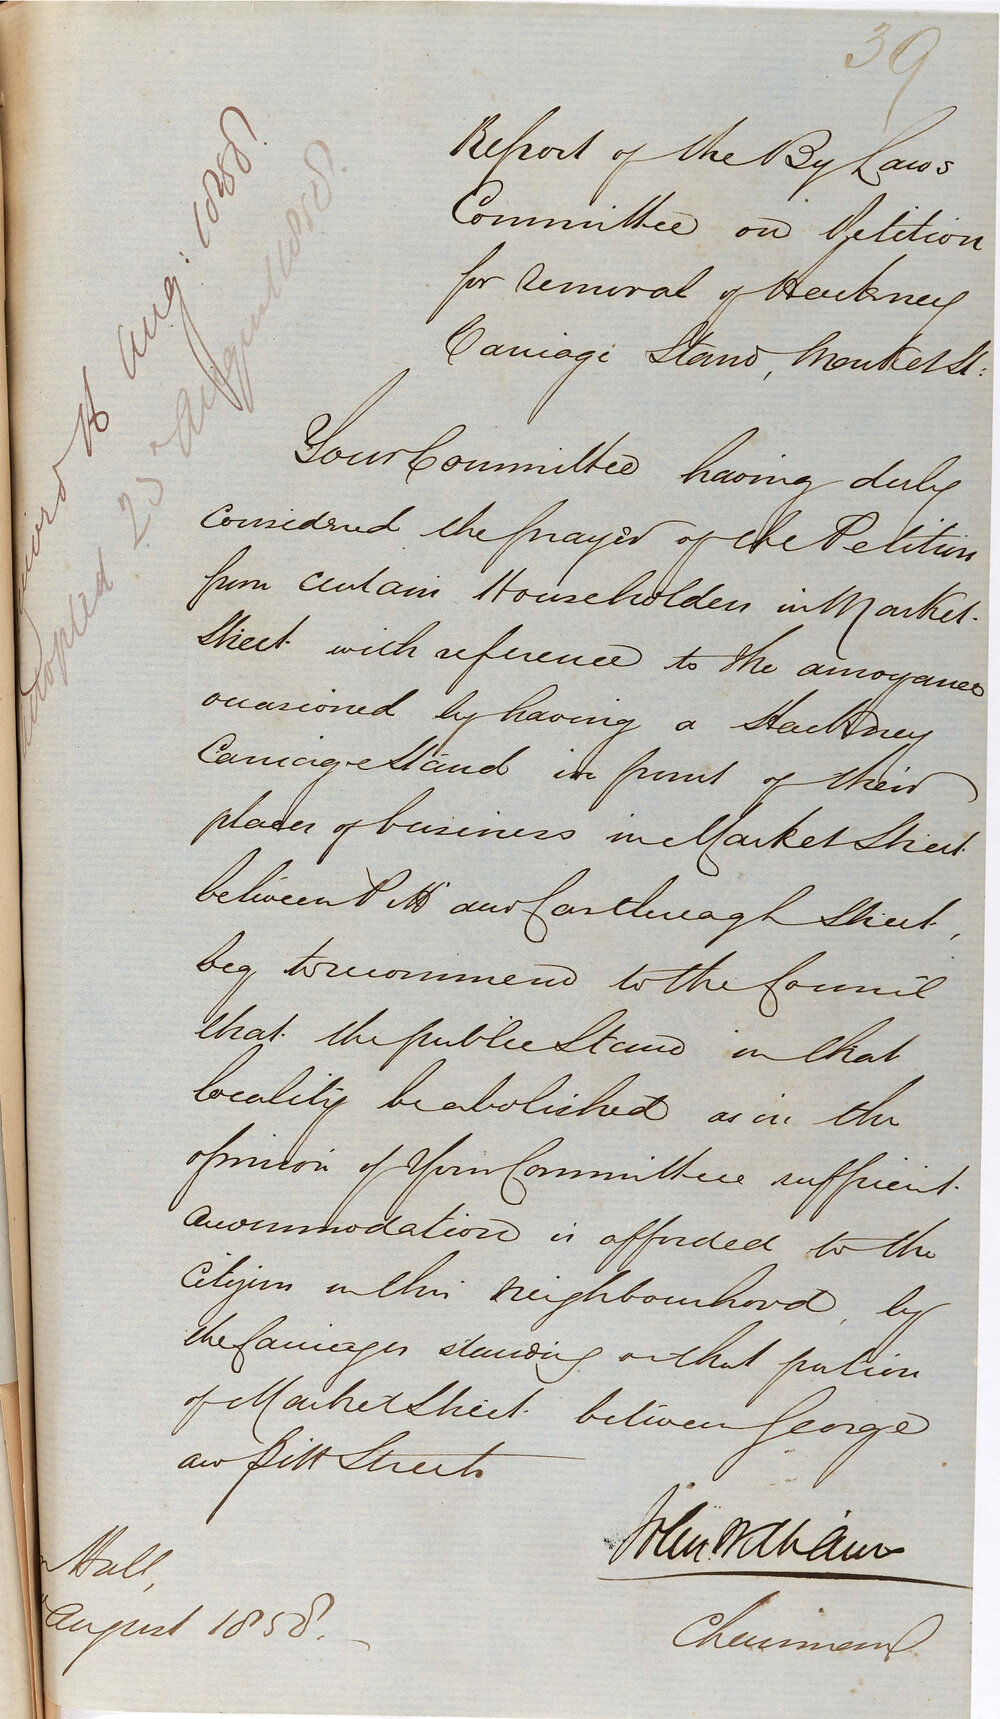 39
Report of the By Laws
Committee on Petition
for removal of Hackney
Carriage Stand, Market St:
Aug: 1858.
adopted 23 August 1858.
Your Committee having duly
considered the prayer of the Petition
from certain Householders in Market
Street with reference to the annoyance
occasioned by having a Hackney
Carriage Stand in front of their
places of business in Market Street
between Pitt and Castlereagh Street,
beg to recommend to the Council
that the public Stand in that
locality be abolished as in the
opinion of Your Committee sufficient
accommodation is afforded to the
citizens in this neighbourhood, by
the Carriages standing on that portion
of Market Street between George
and Pitt Streets
John Williams
Chairman
Hall,
August 1858.